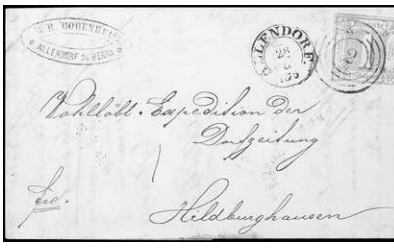 BODENHEIM
ALLENDORF a/WERRA
ALLENDORF.
28
Wohllöbl. Expedition der
Dorfzeitung
Hildburghausen